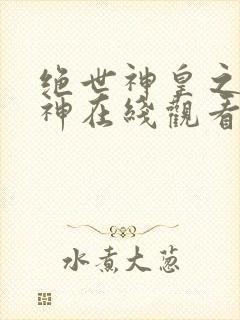 绝世神皇之
神在綫觀看
水煮大葱